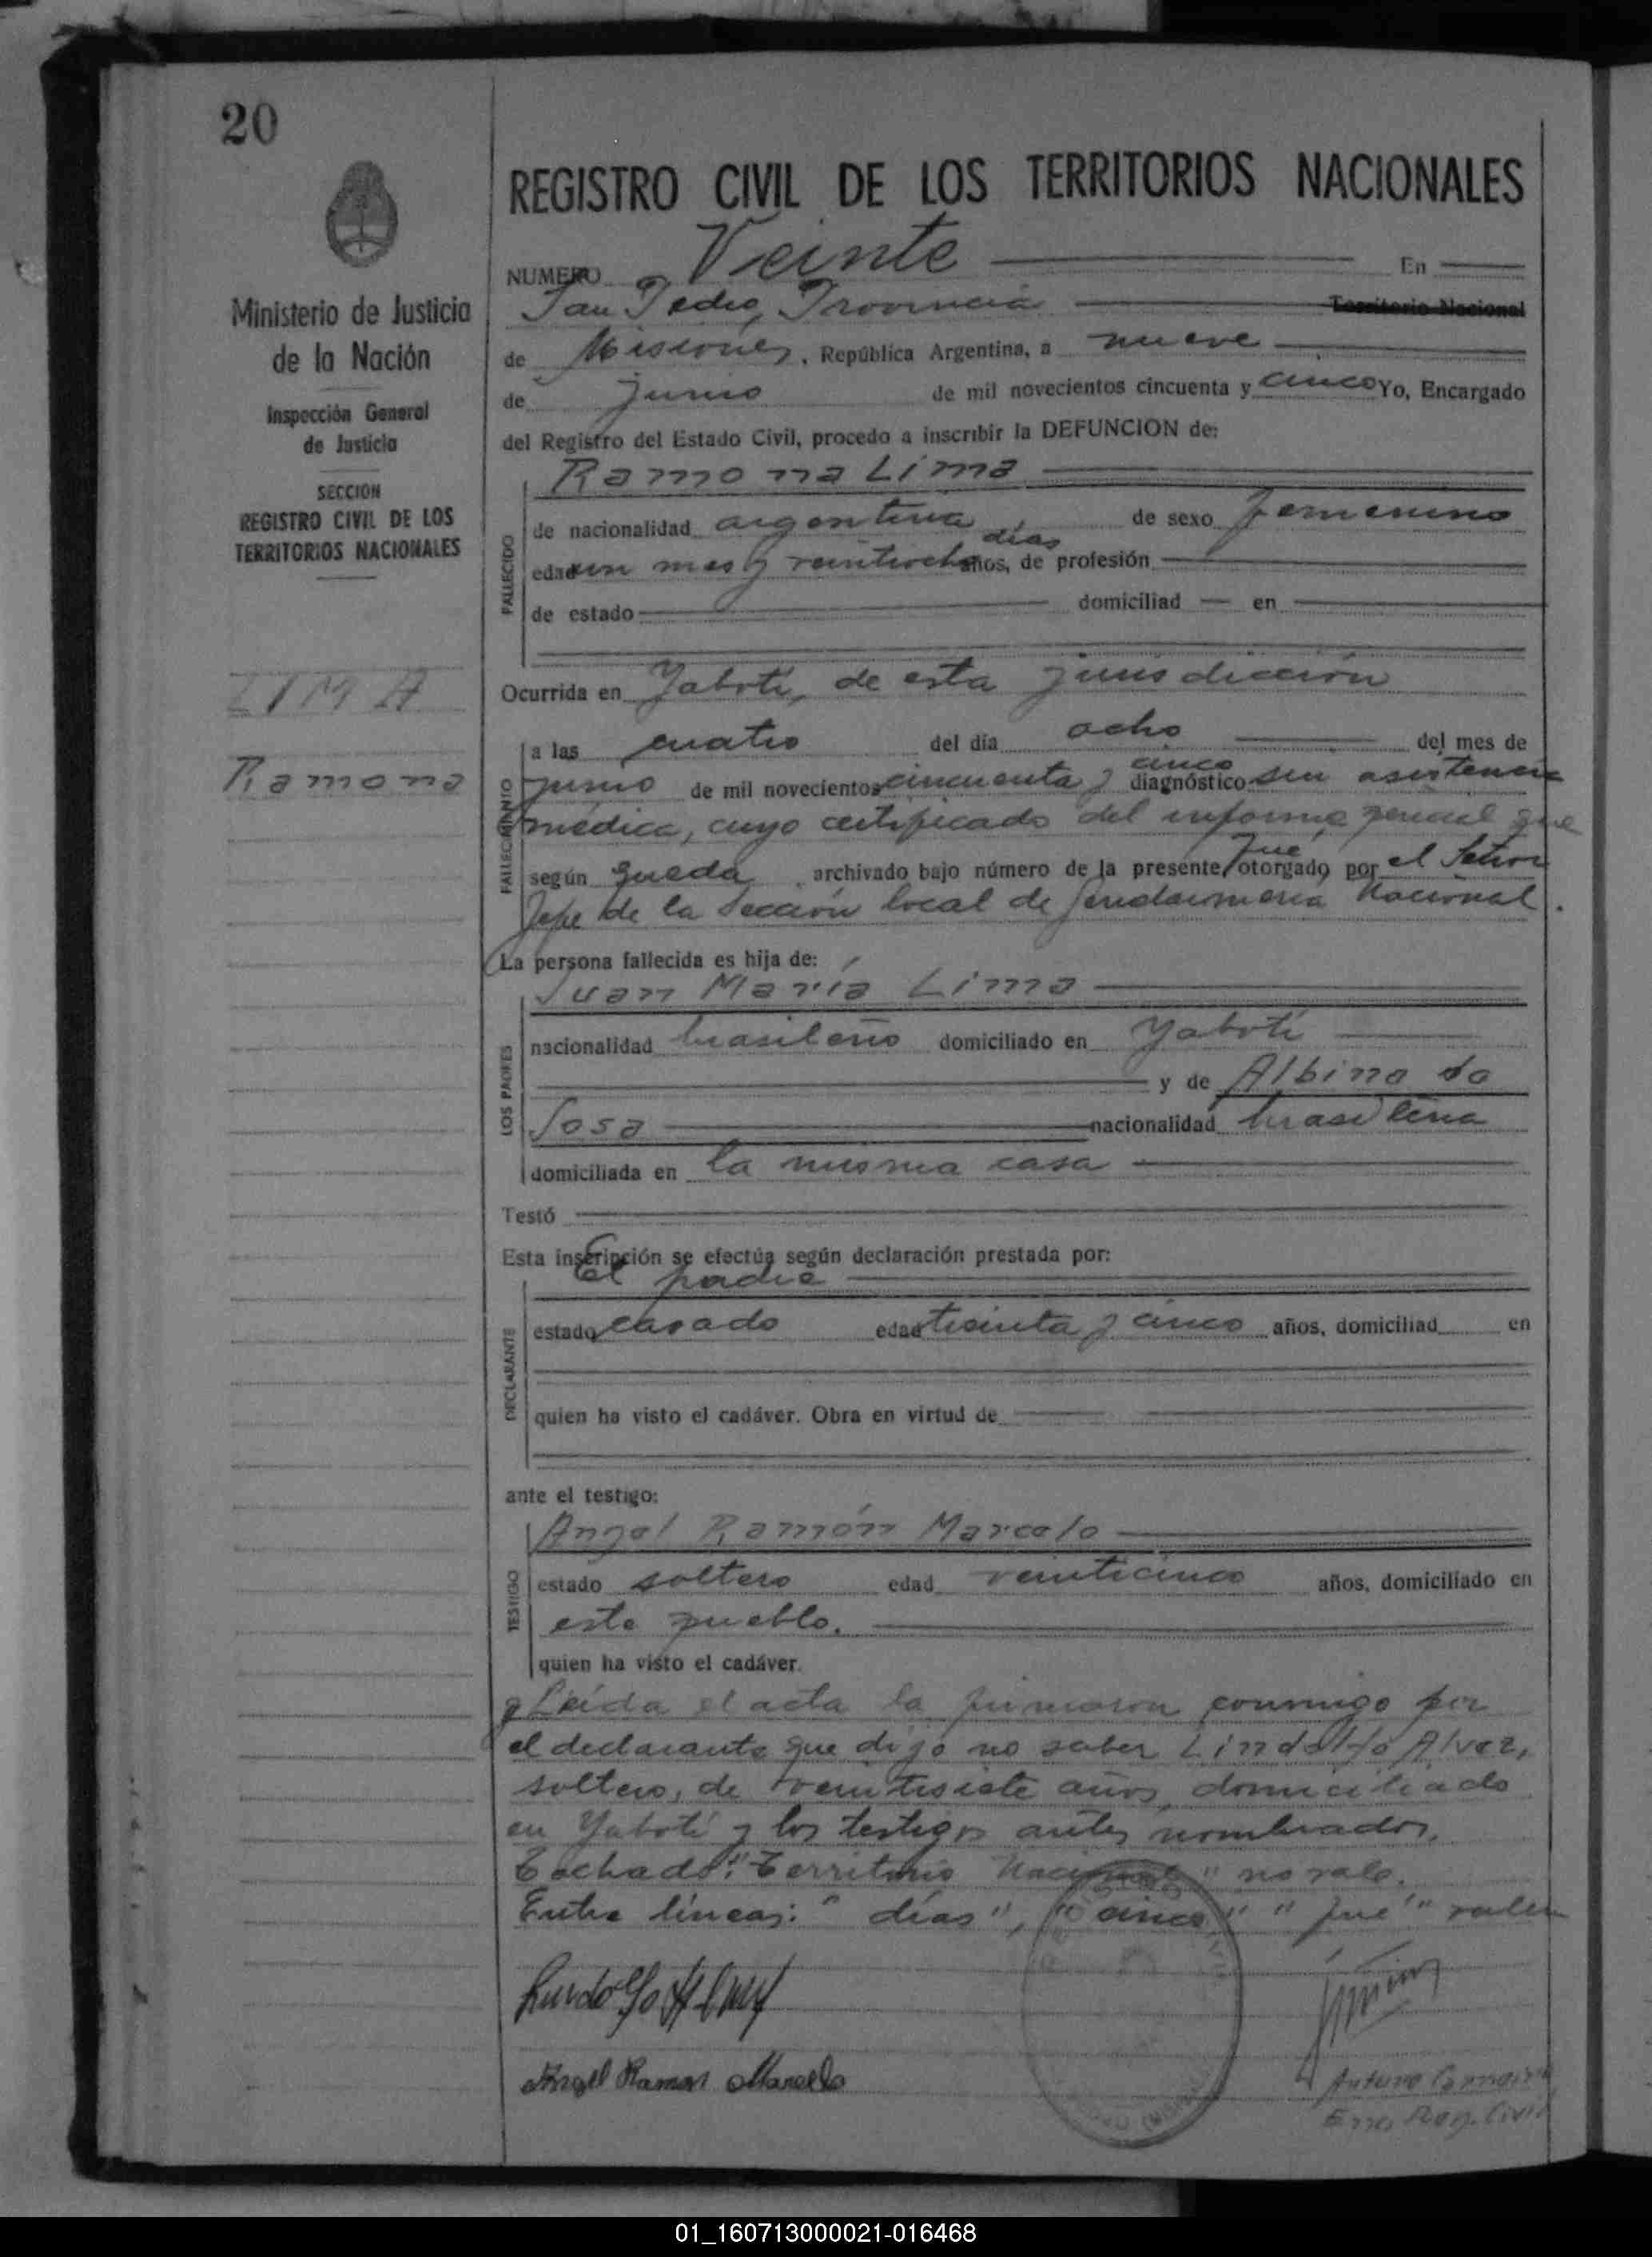 20
Ministerio de Justicia
de la Nación
Inspección General
de Justicia
SECCION
REGISTRO CIVIL DE LOS
TERRITORIOS NACIONALES
LIMA
Ramona
REGISTRO CIVIL DE LOS TERRITORIOS NACIONALES
NUMERO Veinte En
San Pedro, Provincia Territorio Nacional
de Misiones, República Argentina, a nueve
de junio de mil novecientos cincuenta y cinco Yo, Encargado
del Registro del Estado Civil, procedo a inscribir la DEFUNCION de:
Ramona Lima
FALLECIDO
de nacionalidad argentina de sexo femenino
días
edad un mes y veintiocho años, de profesión
de estado domiciliad en
Ocurrida en Yabotí, de esta jurisdicción
FALLECIMIENTO
a las cuatro del día ocho del mes de
cinco
junio de mil novecientos cincuenta y diagnóstico sin asistencia
médica, cuyo certificado del informe que
fué
según queda archivado bajo número de la presente otorgado por el Señor
Jefe de la Sección local de Gendarmería Nacional.
La persona fallecida es hija de:
LOS PADRES
Juan María Lima
nacionalidad brasileño domiciliado en Yabotí
y de Albina da
Sosa nacionalidad brasileña
domiciliada en la misma casa
Testó
Esta inscripción se efectúa según declaración prestada por:
DECLARANTE
El padre
estado casado edad treinta y cinco años, domiciliad en
quien ha visto el cadáver. Obra en virtud de
ante el testigo:
TESTIGO
Angel Ramón Marcelo
estado soltero edad veinticinco años, domiciliado en
este pueblo.
quien ha visto el cadáver.
Leída el acta la firmaron conmigo por
el declarante que dijo no saber Lindolfo Alvez,
soltero, de veintisiete años, domiciliado
en Yabotí y los testigos antes nombrados.
Tachado: "Territorio Nacional" no vale.
Entre líneas: "días", "cinco" "fué" valen
Lindolfo Alvez
Angel Ramon Marcelo
Arturo
Enc. Reg. Civil
01_160713000021-016468